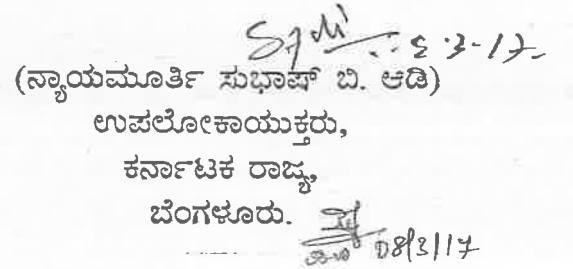 8-3-17
(ನ್ಯಾಯಮೂರ್ತಿ ಸುಭಾಷ್ ಬಿ. ಆಡಿ)
ಉಪಲೋಕಾಯುಕ್ತರು,
ಕರ್ನಾಟಕ ರಾಜ್ಯ,
ಬೆಂಗಳೂರು.
08/3/17